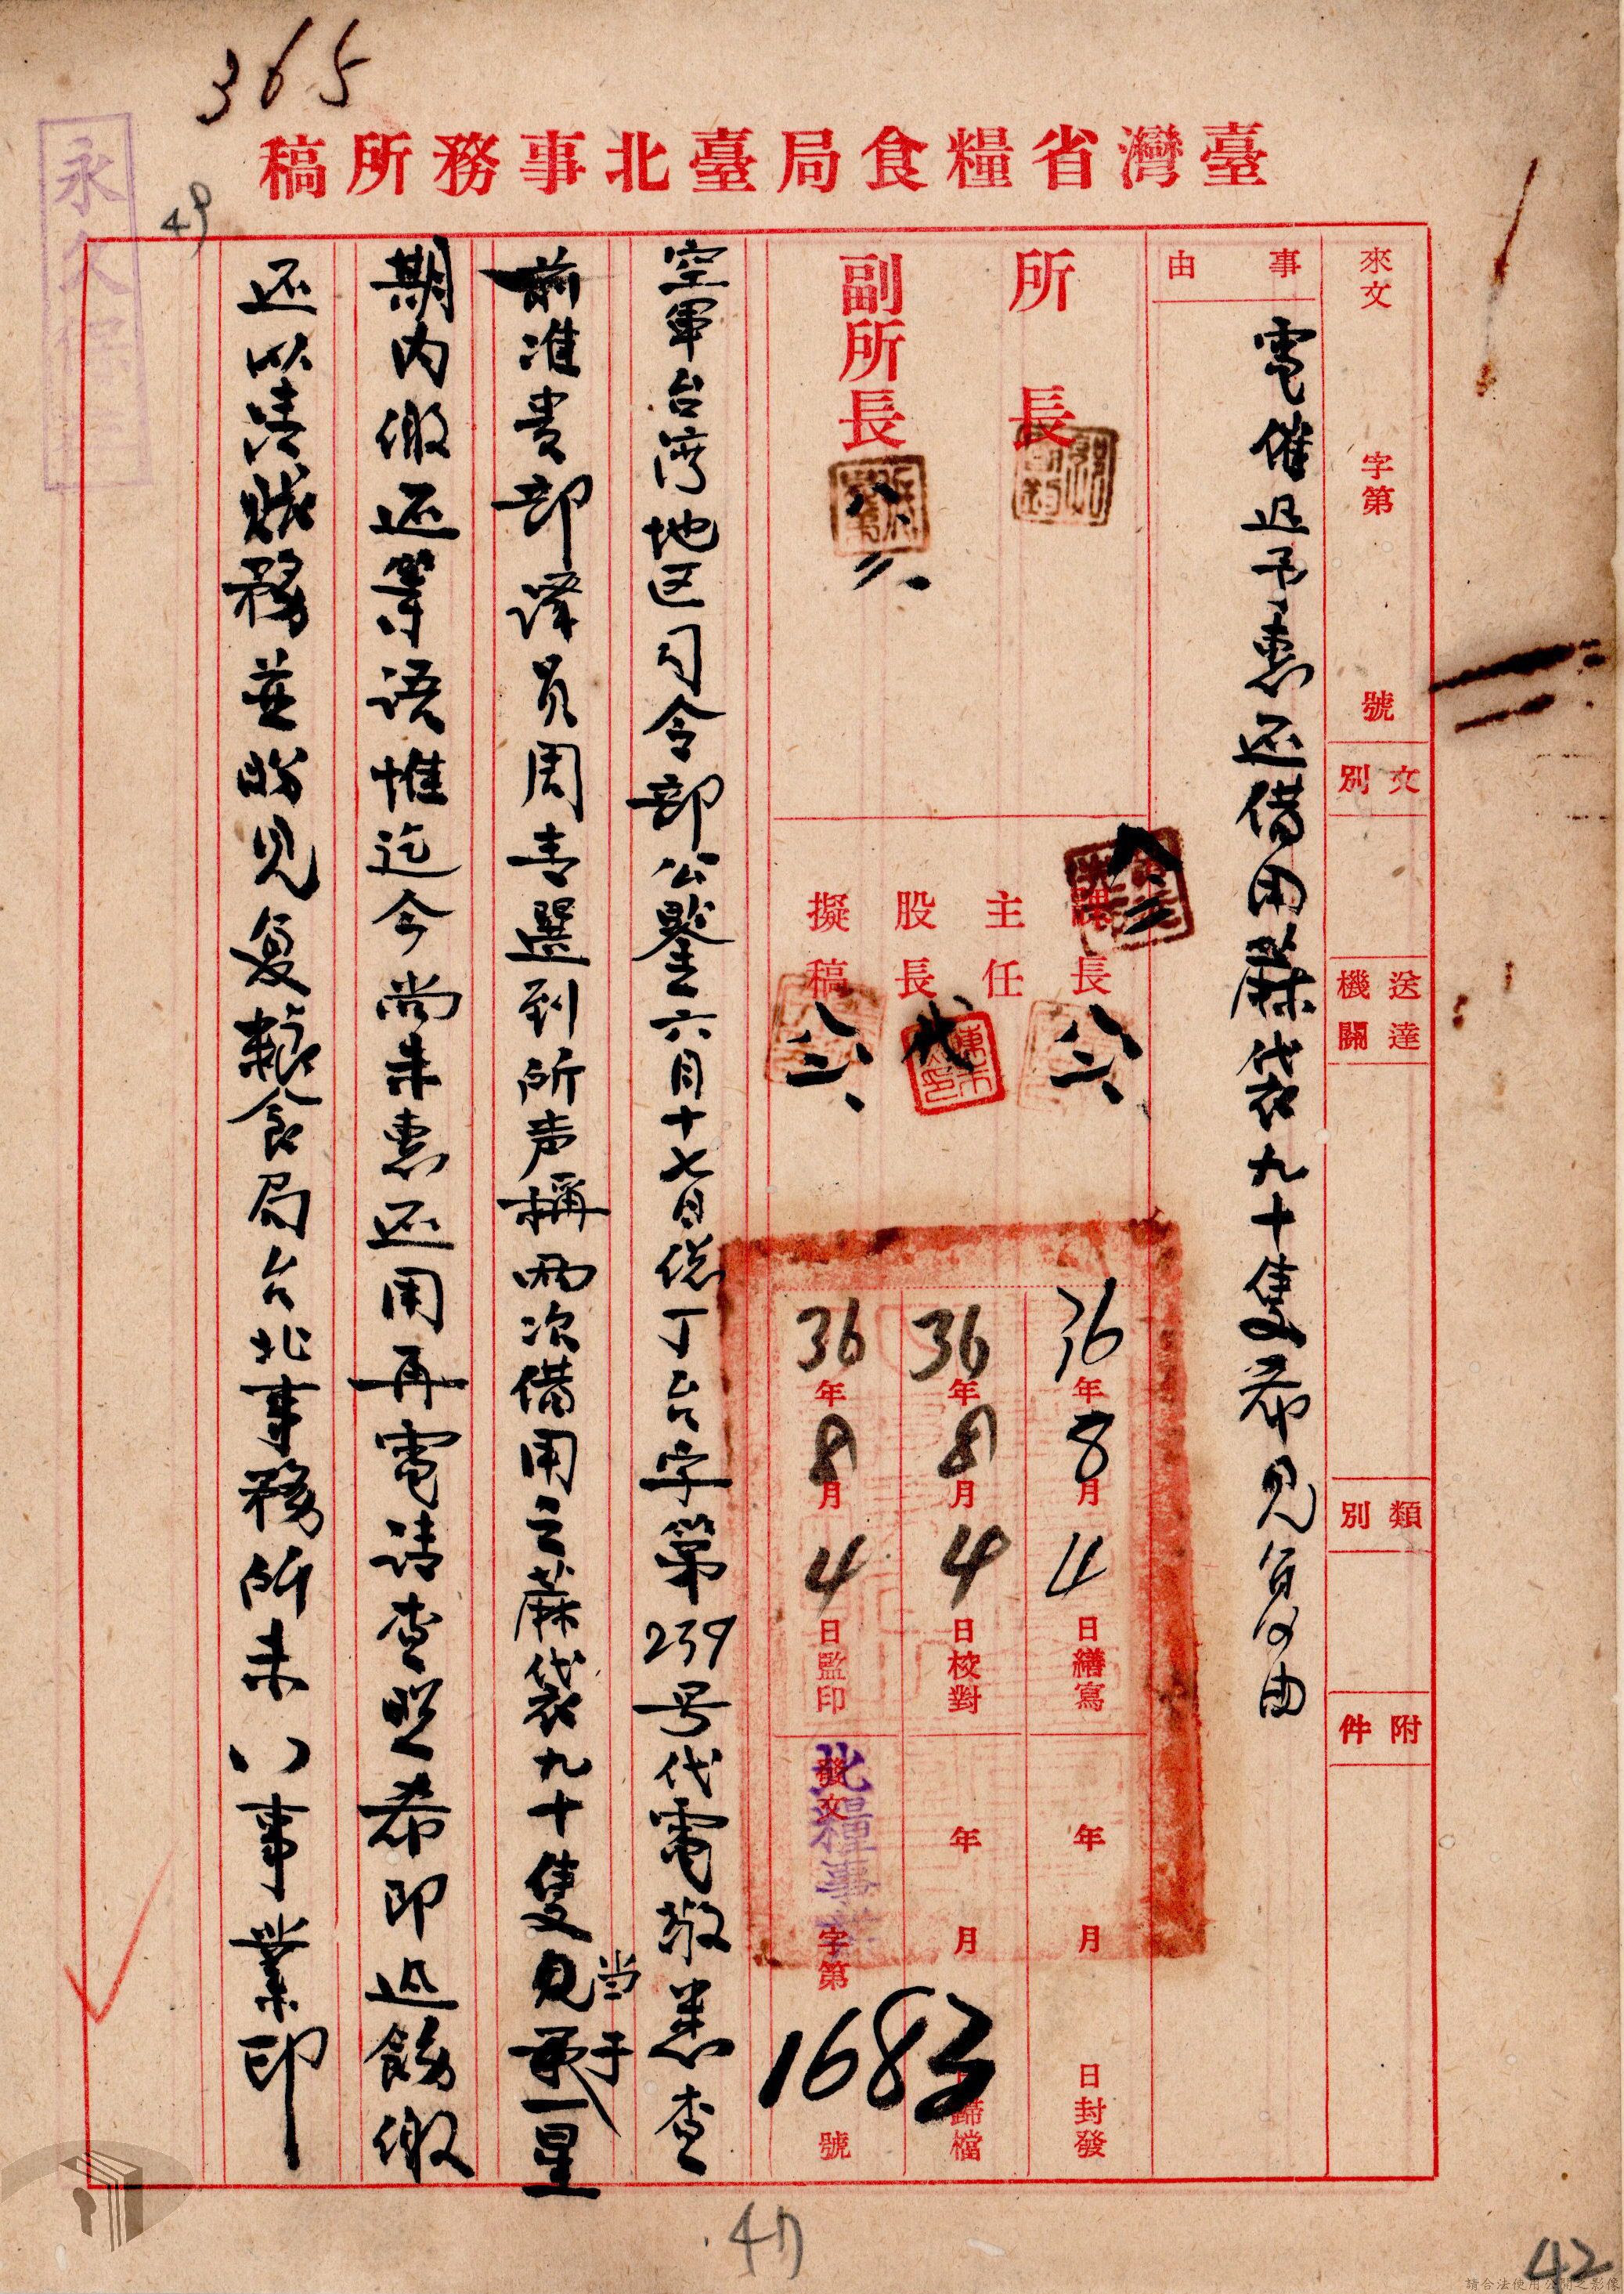 365
臺灣省糧食局臺北事務所稿
永久保
49
來文 字第 號
文別
送達機關
類別
附件
事由
電催迅予惠还借用蔴袋九十隻希見復由
所長
副所長
八、
課長
主任
股長
代
擬稿
36年8月4日繕寫
36年8月4日校對
36年8月4日監印
年月日封發
年月歸檔
發文 字第 1683 號
北糧事
空軍台湾地区司令部公鑒六月十七日 丁台字第239号代電敬悉查
前准貴部譯員周青選到所声稱兩次借用之蔴袋九十隻 当于一星
期内繳还等语惟迄今尚未惠还用再電请查照希即迅飭繳
还以清賬務並盼見复糧食局台北事務所未 事業印
47
42
請合法使用公開之影像